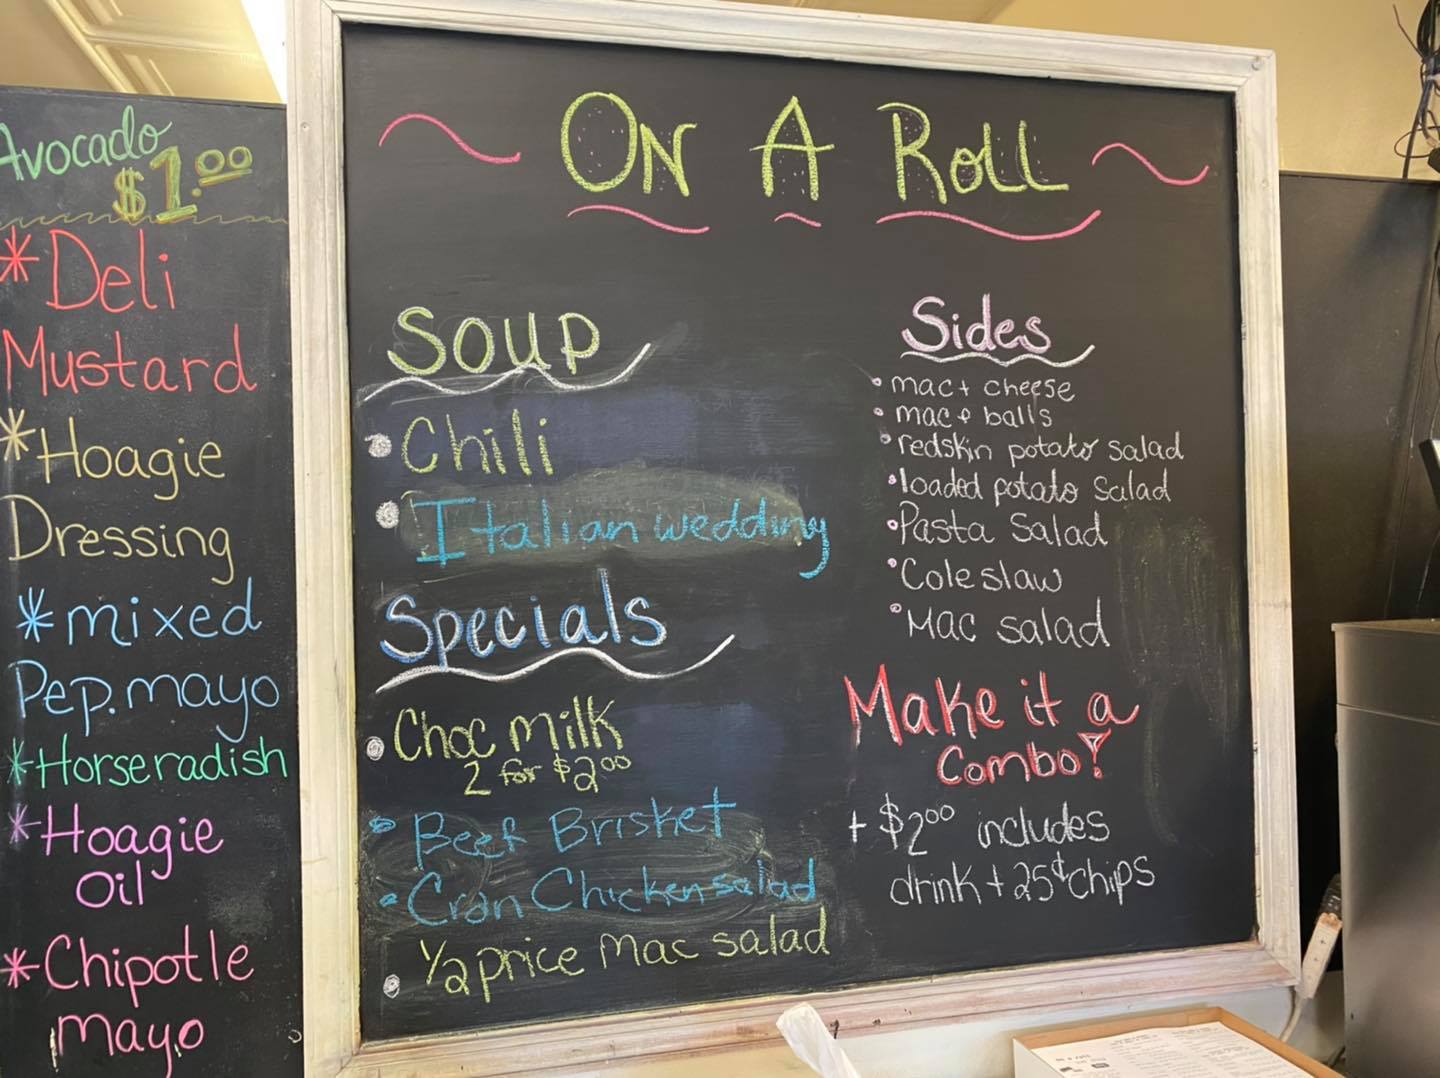 Avocado
$1.00
*Deli
Mustard
*Hoagie
Dressing
*mixed
Pep. mayo
*Horseradish
*Hoagie
Oil
*Chipotle
mayo
~ ON A ROLL ~
Soup
• Chili
• Italian wedding
Specials
• Choc milk
2 for $2.00
• Beef Brisket
• Cran Chicken salad
• 1/2 price Mac salad
Sides
• mac + cheese
• mac & balls
• redskin potato salad
• loaded potato salad
• Pasta Salad
• Coleslaw
• Mac salad
Make it a
Combo!
+ $2.00 includes
drink + 25¢ chips